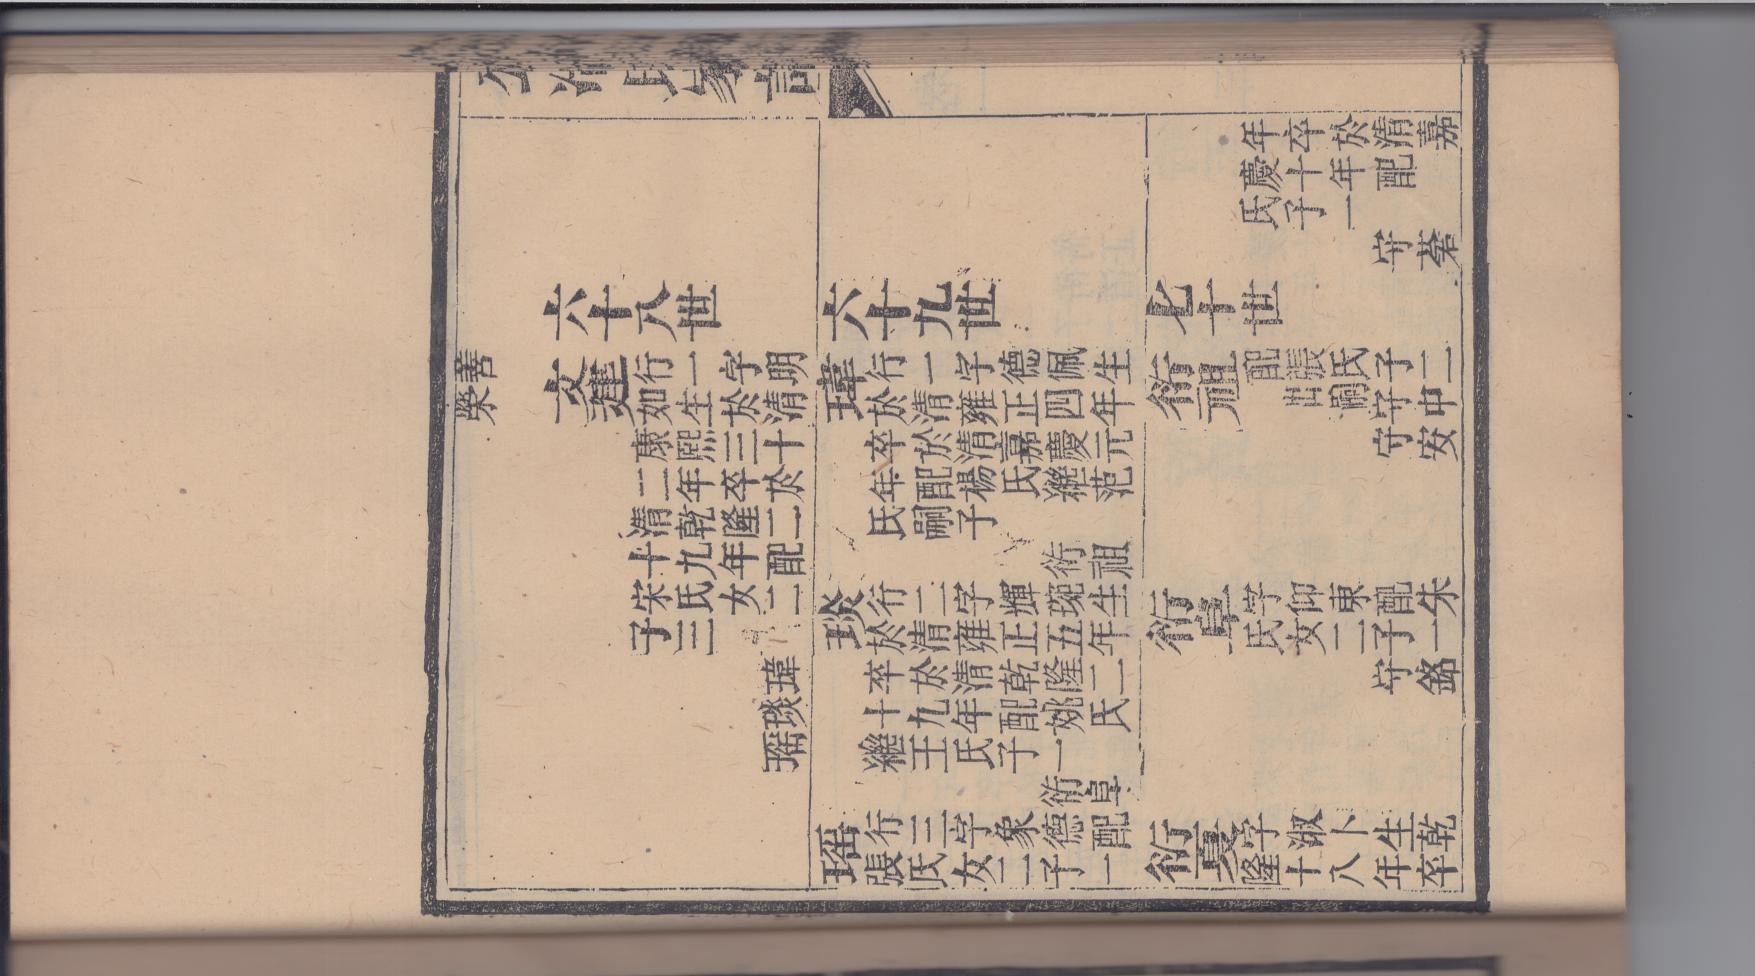 年卒於清嘉
慶十年配
氏子一
守榮
六十八世
六十九世
七十世
善榮
文進
行一字明
如生於清
康熙三十
二年卒於
清乾隆二
十九年配
宋氏女二
子三
瑋
琰
瑶
瑋
行一字德佩生
於清雍正四年
卒於清嘉慶元
年配楊氏繼范
氏嗣子
衍祖
琰
行二字輝斑生
於清雍正五年
卒於清乾隆二
十九年配姚氏
繼王氏子一
衍阜
瑶
行三字象德配
張氏女二子一
衍祖
配張氏子二
出嗣
守中
守安
衍阜
字仰東配朱
氏女二子一
守銘
字淑卜生乾
隆十八年卒